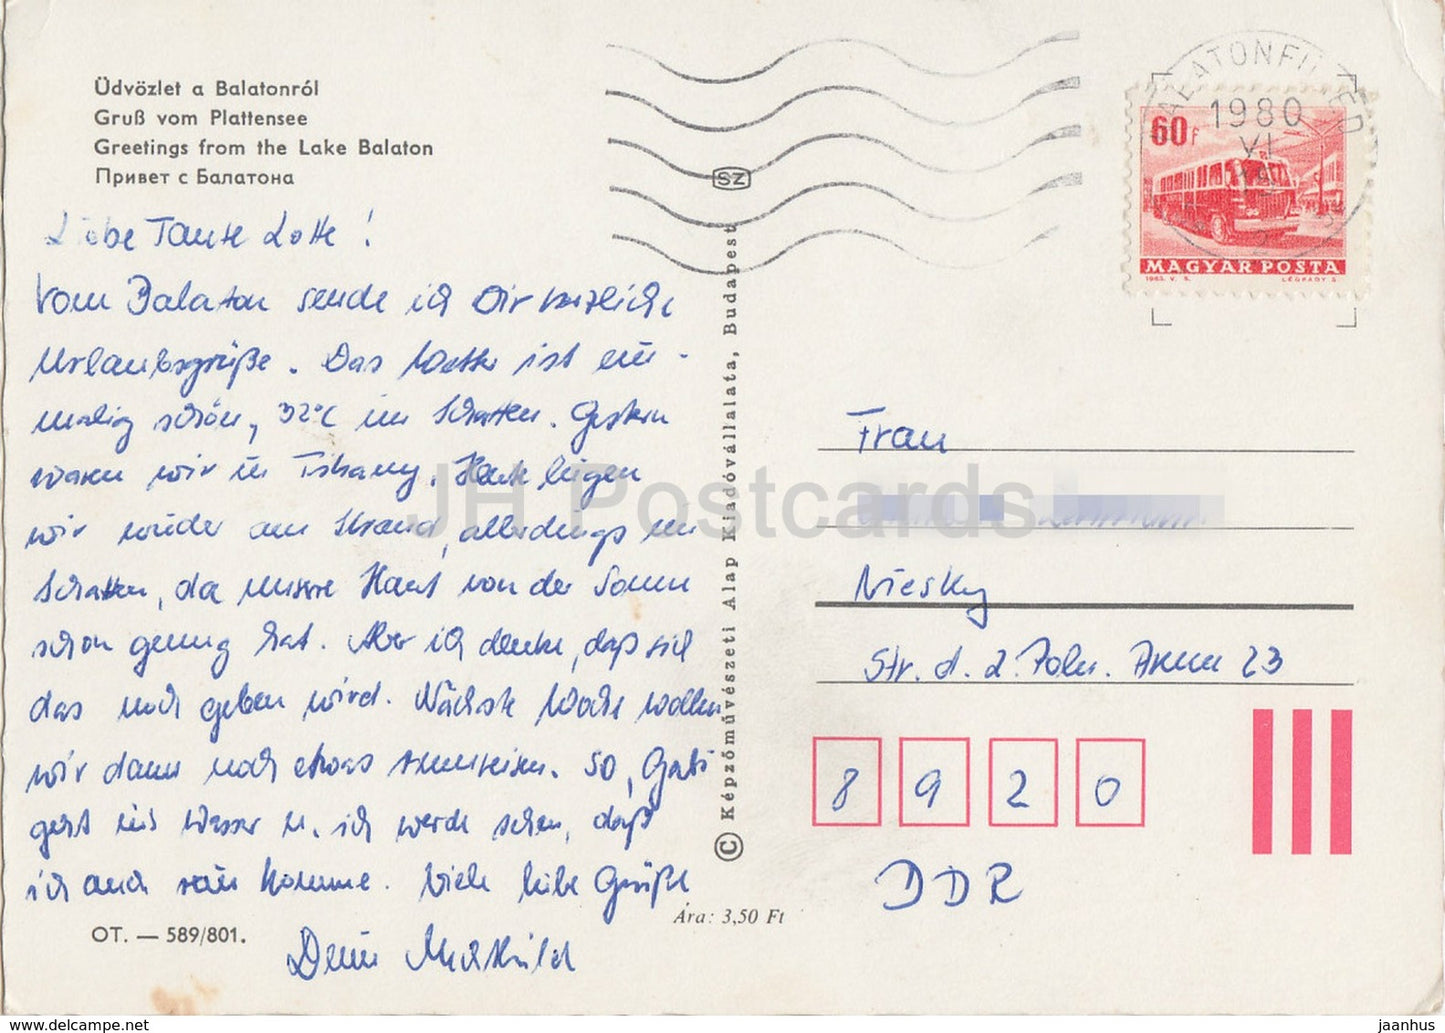 Üdvözlet a Balatonról
Gruß vom Plattensee
Greetings from the Lake Balaton
Привет с Балатона
Liebe Tante Lotte!
Vom Balaton sende ich Dir herzliche
Urlaubsgrüße. Das Wetter ist ein-
malig schön, 32°C im Schatten. Gestern
waren wir in Tihany. Heute liegen
wir wieder am Strand, allerdings im
Schatten, da unsere Haut von der Sonne
schon genug hat. Aber ich denke, daß sich
das noch geben wird. Nächste Woche wollen
wir dann noch etwas rumreisen. So, Gabi
geht ins Wasser u. ich werde sehen, daß
ich auch rein komme. Viele liebe Grüße
Deine Mechthild
OT. — 589/801.
Ára: 3,50 Ft
SZ
© Képzőművészeti Alap Kiadóvállalata, Budapest
BALATONFÜRED
1980
VI
60f
MAGYAR POSTA
1963. V. S.
LÉGRÁDY S.
Frau
Niesky
Str. d. 2. Poln. Armee 23
8920
DDR
JH Postcards
delcampe.net
jaanhus